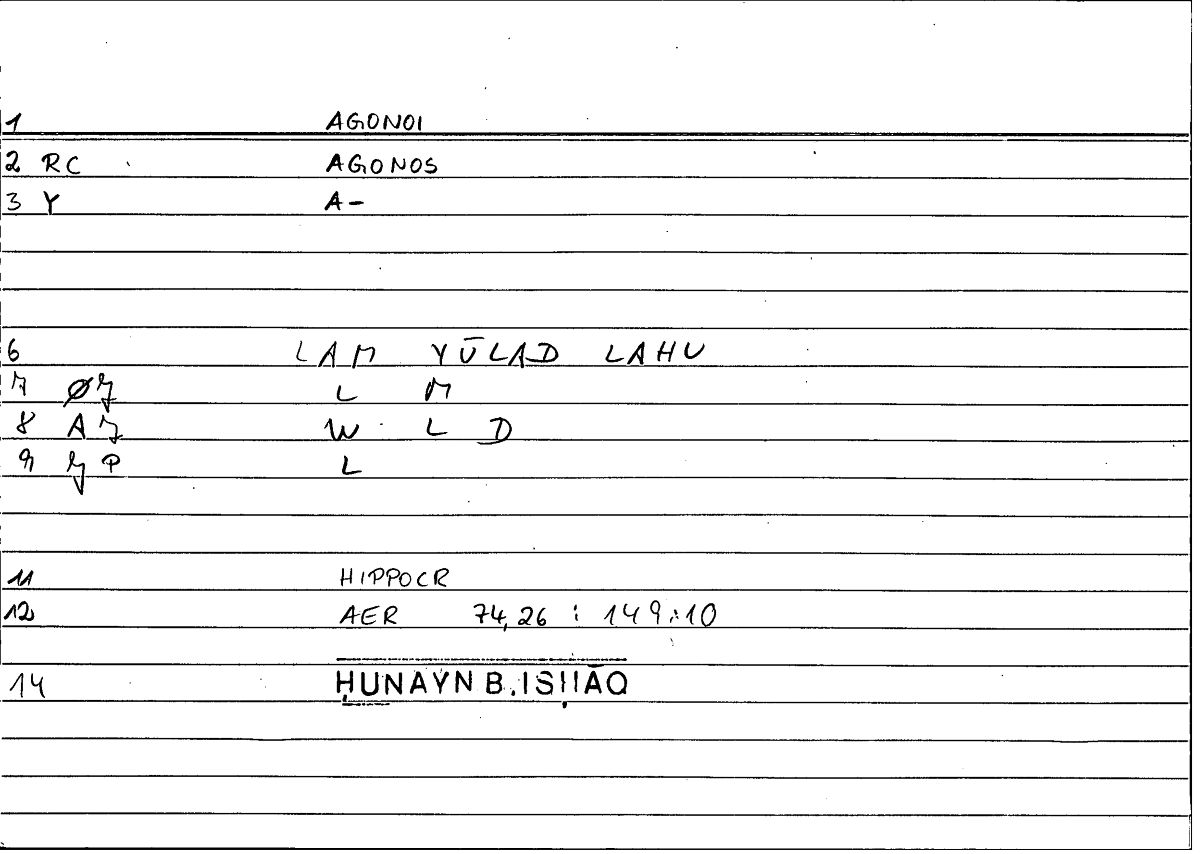 1 AGONOI
2 RC AGONOS
3 Y A-
6 LAM YŪLAD LAHU
7 L M
8 W L D
9 L
11 HIPPOCR
12 AER 74,26 : 149:10
14 ḤUNAYN B. ISḤĀQ